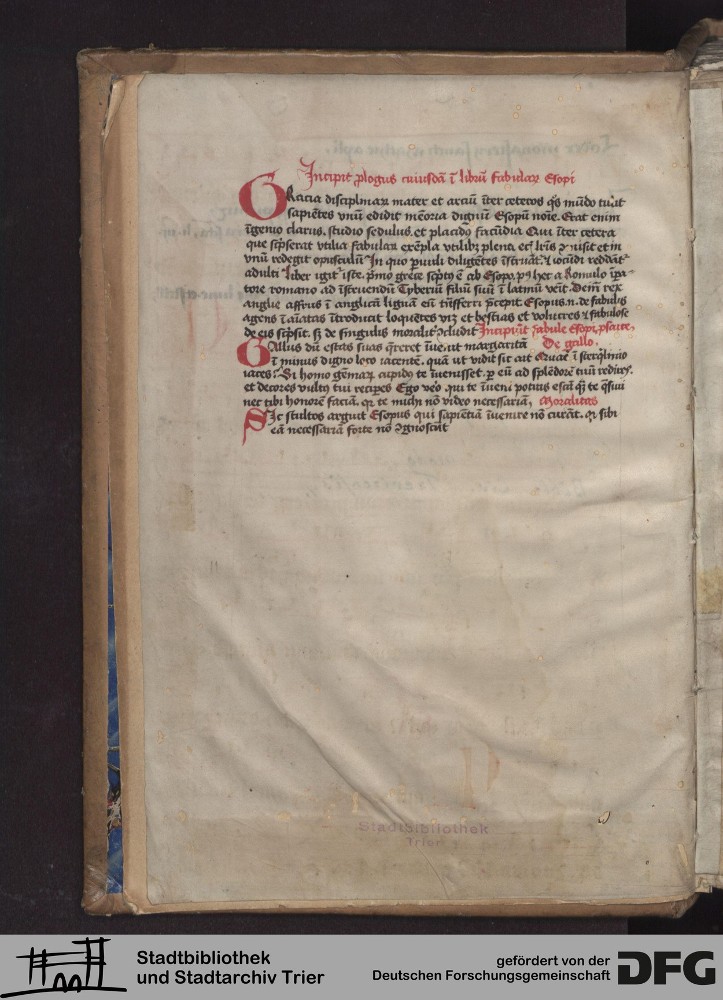 Incipit ꝓlogus cuiusdā ī librū fabularꝫ Esopi
Gracia disciplinarꝫ mater et arciū īter cetecos q̄s mūdo tulit
sapiētes vnū edidit mēoria dignū Esopū noīe. Erat enim
īgenio clarus. studio sedulus. et placido facūdia Qui īter cetera
que scpserat vtilia fabularꝫ exēpla vtilibꝫ plena
vnū redegit opusculū In quo puuli diligētes īstruāt᷑ ⁊ iocūdi reddāt᷑
adulti liber igit᷑ iste. pmo grece scpto ē ab Esopo. pꝰ hec a Romulo īpa
tore romano ad īstruendū Tyberiū filiū suū ī latinū veīt. Deīn rex
anglie affrus ī anglicā liguā eū trāsferri pcepit Esopus .n. de fabulis
agens īaīatas ītroducit loquētes vꝫ et bestias et volucres ⁊ fabulose
de eis scpsit. sꝫ de singulis moralit᷑ ꝯcludit Incipiūt fabule Esopi
Gallus dū estas suas q̄reret īue.it margaritā De gallo.
ī minus digno loco iacentē. quā ut vidit sic ait Quare ī sterq̄linio
iaces. Si homo gēmarꝫ cupidꝰ te īuenisset. p eū ad splēdorē tuū redires.
et decores vultꝰ tui reciperes Ego veo. qui te īueni potius escā q̄ te q̄siui
nec tibi honorē faciā. qꝛ te michi nō video necessariā, Moralitas
Sic stultos arguit Esopus qui sapiētiā īuenire nō curāt. qꝛ sibi
eā necessariā forte nō ꝯgnoscūt
Stadtbibliothek
Trier
Stadtbibliothek
und Stadtarchiv Trier
gefördert von der
Deutschen Forschungsgemeinschaft
DFG